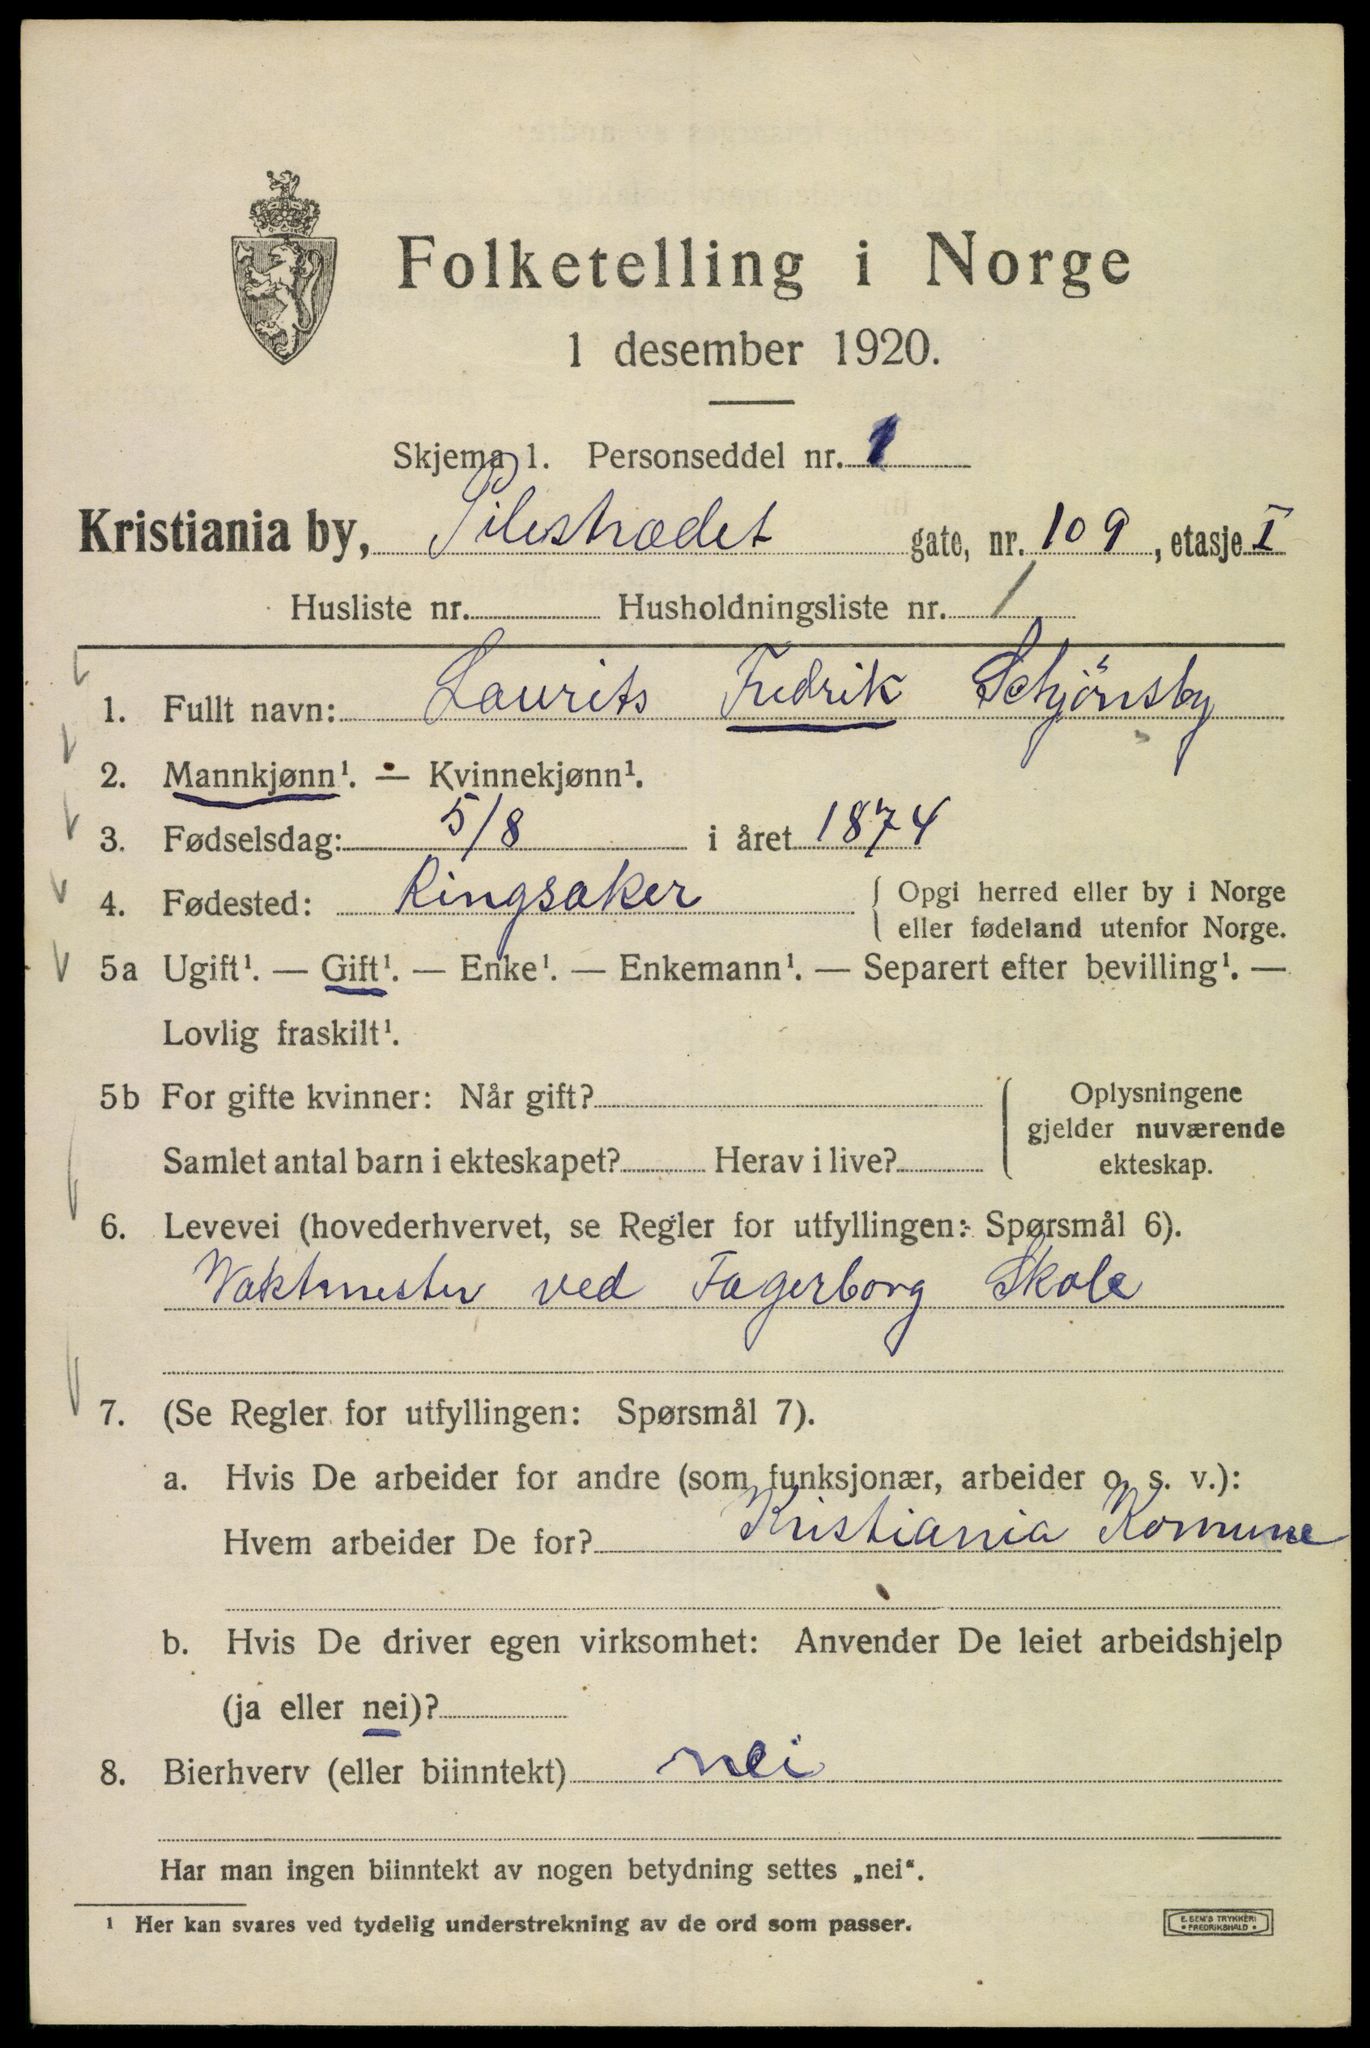 Folketelling i Norge
1 desember 1920.
Skjema 1. Personseddel nr. 1
Kristiania by, Pilestrædet gate, nr. 109, etasje I
Husliste nr. Husholdningsliste nr. 1
1. Fullt navn: Laurits Fredrik Schjönsby
2. Mannkjønn¹. — Kvinnekjønn¹.
3. Fødselsdag: 5/8 i året 1874
4. Fødested: Ringsaker { Opgi herred eller by i Norge
eller fødeland utenfor Norge.
5a Ugift¹. — Gift¹. — Enke¹. — Enkemann¹. — Separert efter bevilling¹. —
Lovlig fraskilt¹.
5b For gifte kvinner: Når gift?
Samlet antal barn i ekteskapet? Herav i live?
Oplysningene
gjelder nuværende
ekteskap.
6. Levevei (hovederhvervet, se Regler for utfyllingen: Spørsmål 6).
Vaktmester ved Fagerborg Skole
7. (Se Regler for utfyllingen: Spørsmål 7).
a. Hvis De arbeider for andre (som funksjonær, arbeider o. s. v.):
Hvem arbeider De for? Kristiania Komune
b. Hvis De driver egen virksomhet: Anvender De leiet arbeidshjelp
(ja eller nei)?
8. Bierhverv (eller biinntekt) nei
Har man ingen biinntekt av nogen betydning settes „nei“.
¹ Her kan svares ved tydelig understrekning av de ord som passer.
E. SEM'S TRYKKERI
• FREDRIKSHALD •